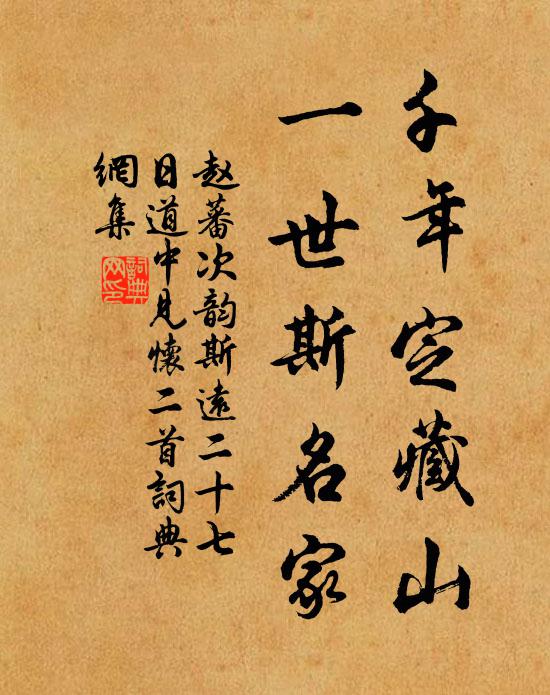 千年定藏山
一世斯名家
赵蕃次韵斯遠二十七
日道中見懷二首詞典
網集
詞典網印